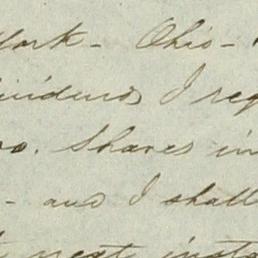 York - Ohio -
dividends I req
no. Shares in
- and I shall
next insta